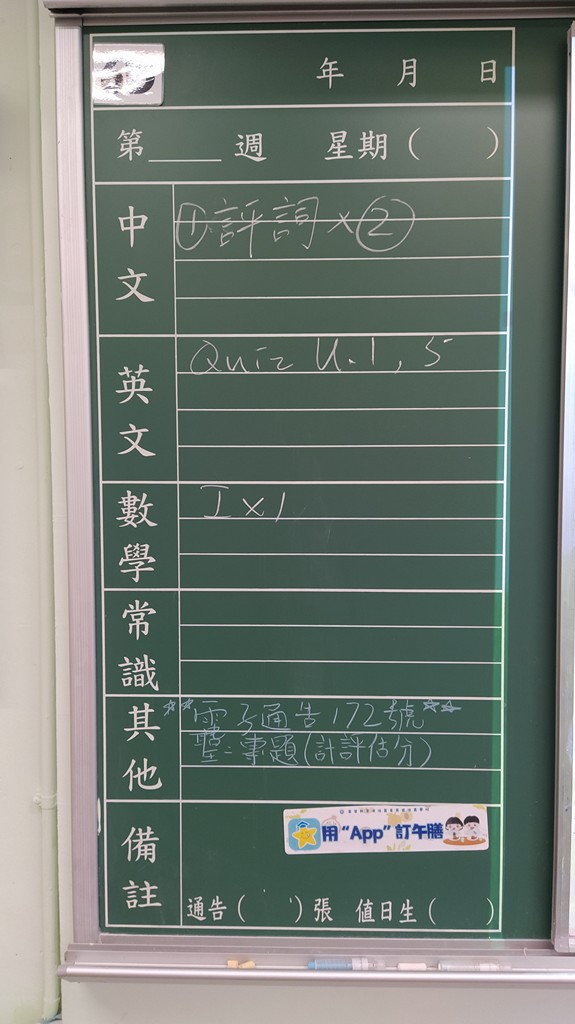 年 月 日
第____週 星期( )
中文
①評詞×②
英文
Quiz U.1, 5
數學
I×1
常識
其他
**電子通告172號**
聖:專題(計評估分)
備註
用“App”訂午膳
通告( )張 值日生( )